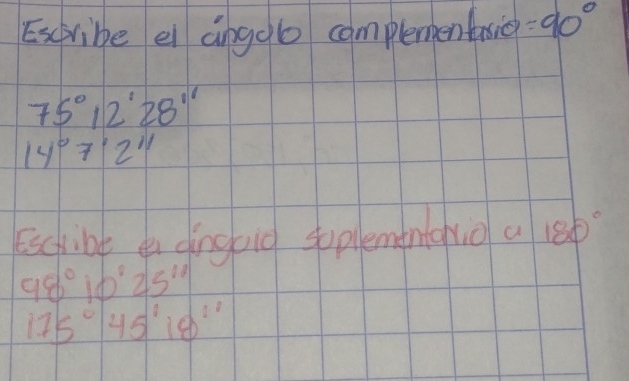 Escribe el ángulo complementario = 90°
75° 12' 28''
14° 7' 2''
Escribe el ángulo suplementario a 180°
98° 10' 25''
175° 45' 18''